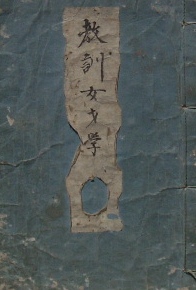 教訓女才学